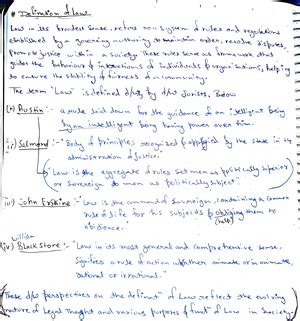 # Definition of Law
Law in its broadest sense, refers to a system of rules and regulations
established by a governing authority to maintain order, resolve disputes,
promote justice within a society. These rules serve as framework that
guides the behaviour & interactions of individuals & organizations, helping
to ensure the stability & fairness of a community.
The term 'Law' is defined by Jurists. Below
Austin :- "a rule laid down for the guidance of an intelligent being
by an intelligent being having power over him.
Salmond :- "Body of principles recognized & applied by the state in the
administration of Justice.
Law is the aggregate of rules set men as politically superior
or Sovereign to men as politically subject".
(iii) John Erskine :- "Law is the command of Sovereign, containing a common
rule of life for his subjects & obliging them to
obidience.
William
(iv) Blackstone :- "Law in its most general and comprehensive sense,
Signifies a rule of action whether animate or in animate,
rational or irrational."
These perspectives on the of Law reflect the evolving
nature of Legal Thought and various purposes & of Law in Society